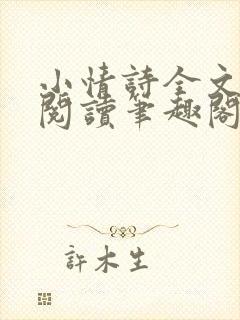 小情詩全文
閱讀筆趣閣
許木生